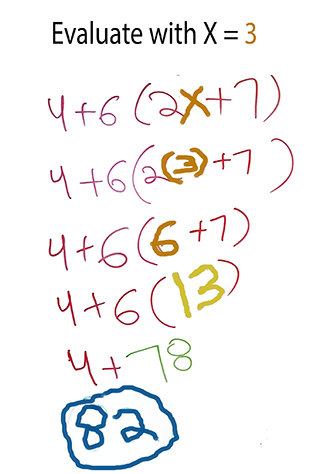 Evaluate with X = 3
4+6(2x+7)
4+6(2(3)+7)
4+6(6+7)
4+6(13)
4+78
82